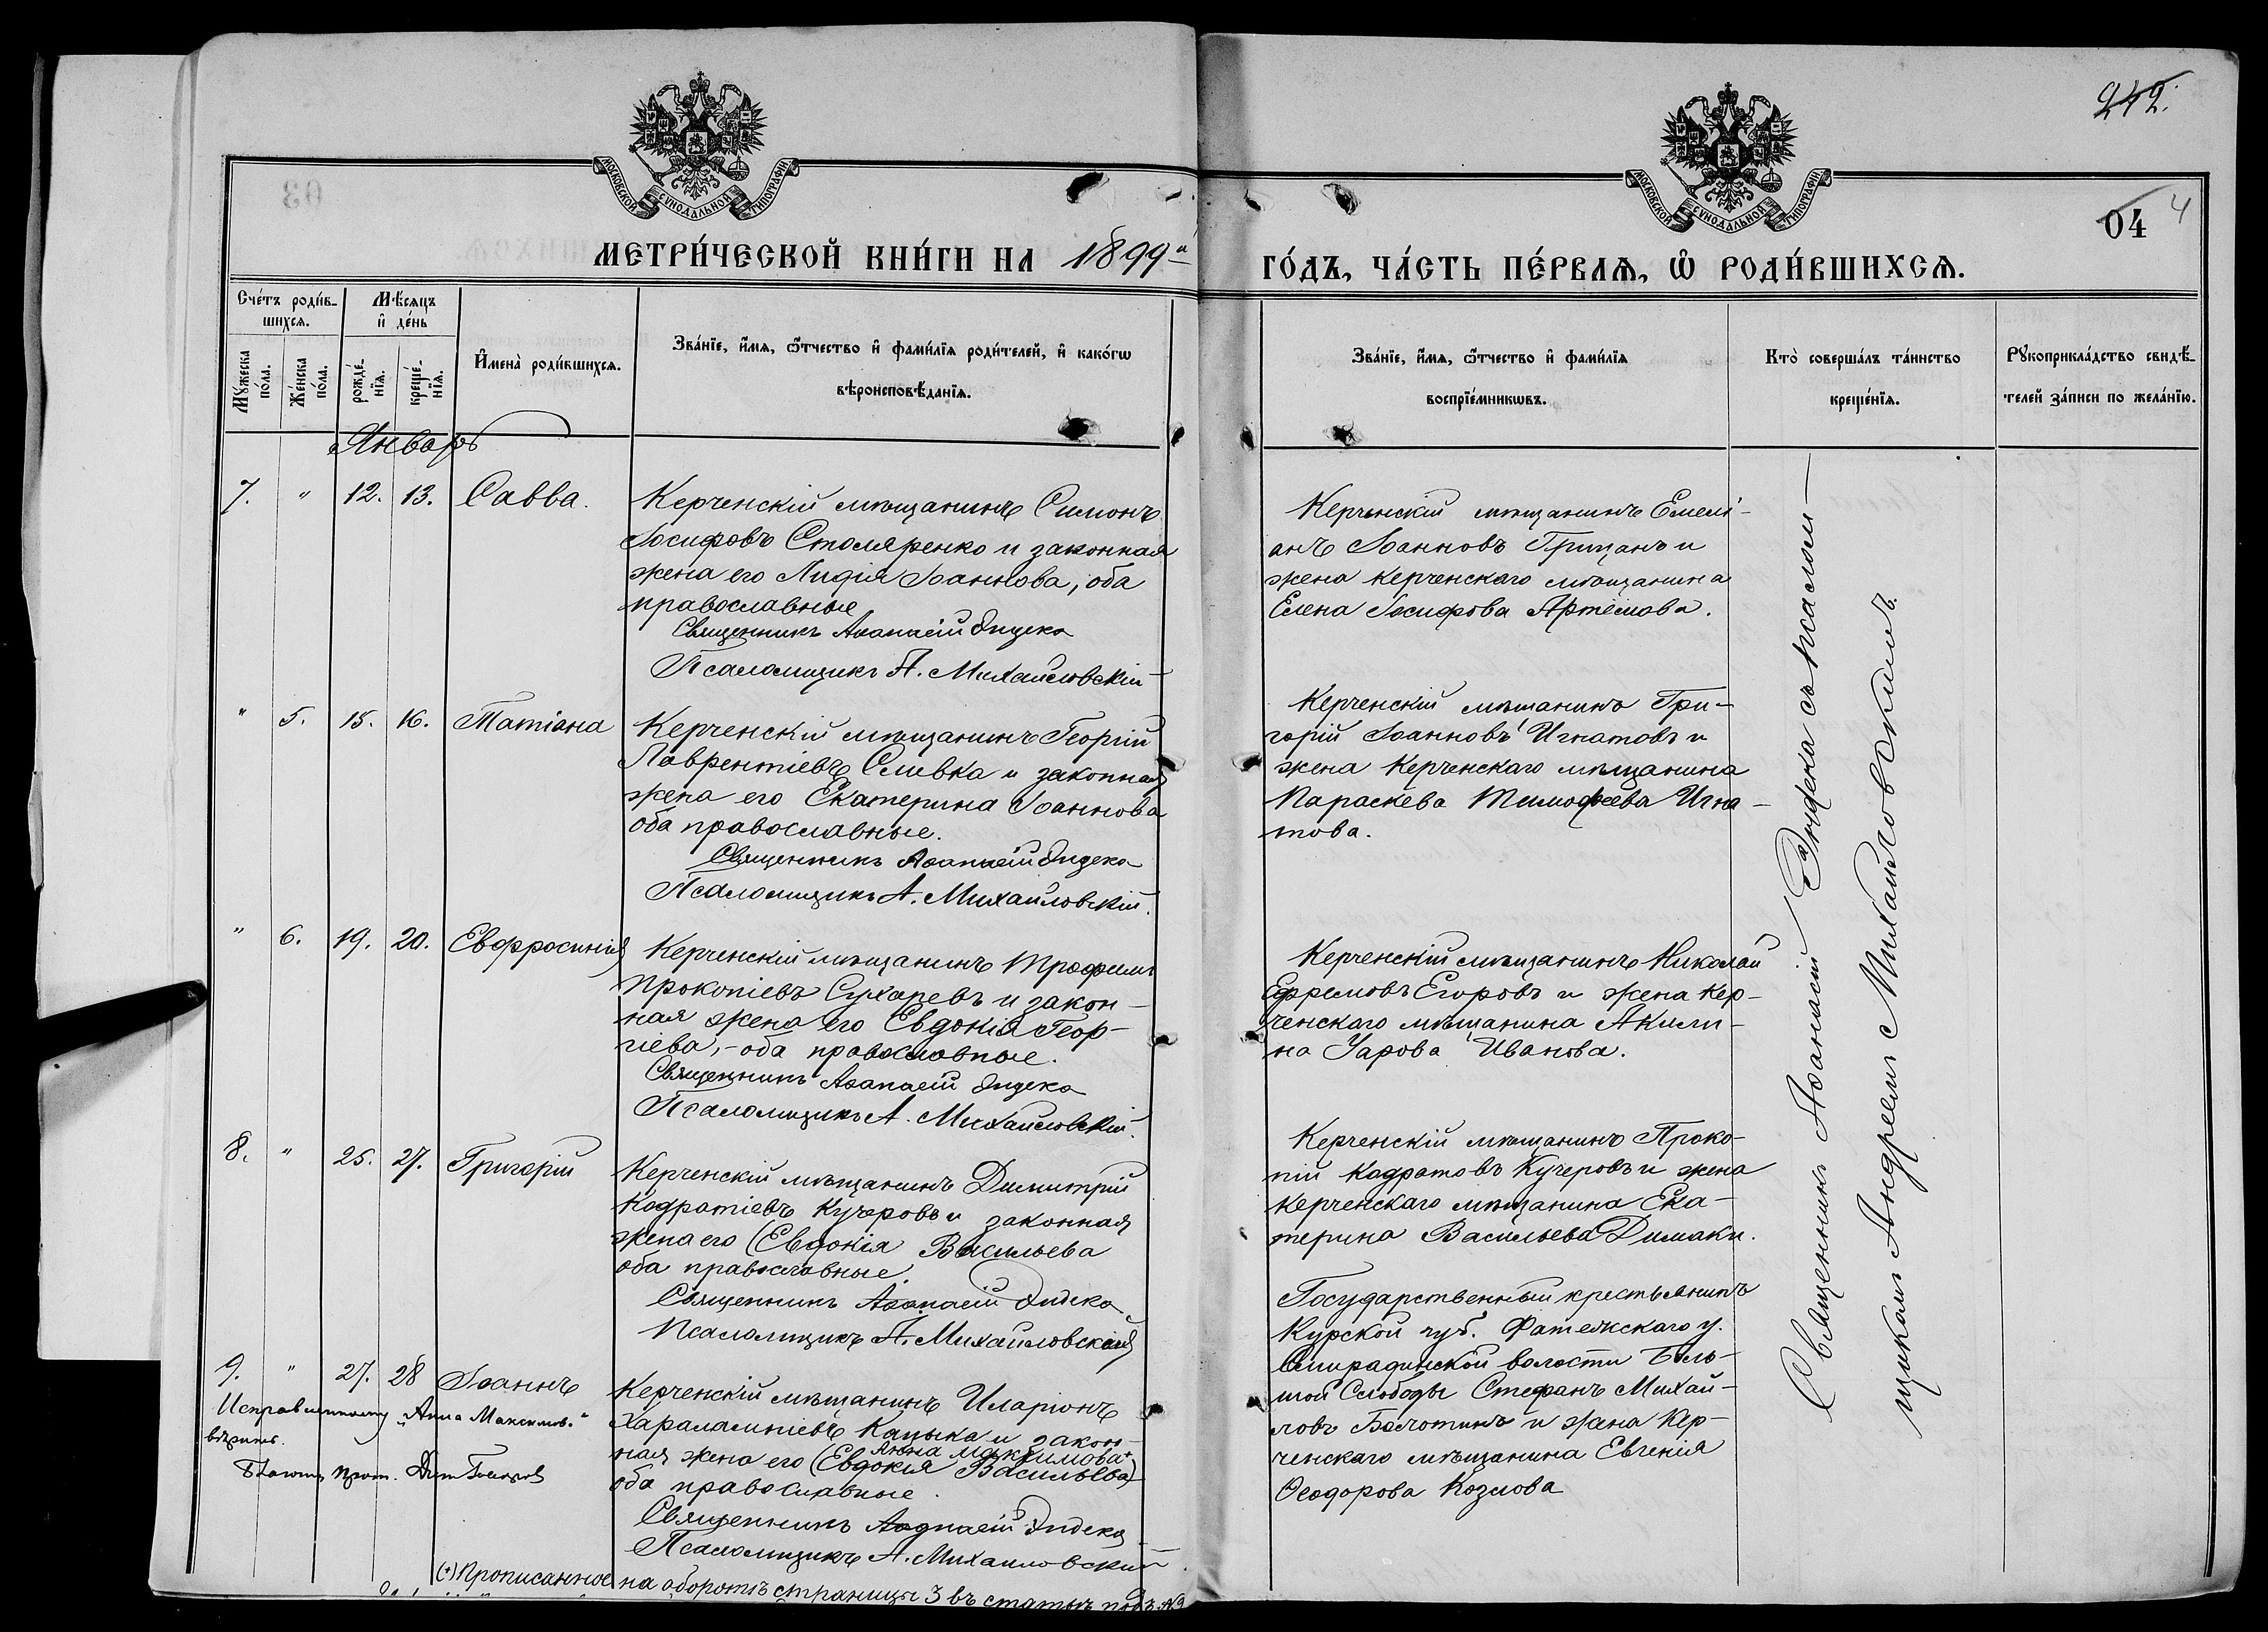 242.
МОСКОВСКОЙ СУНОДАЛЬНОЙ ТИПОГРАФІИ
МОСКОВСКОЙ СУНОДАЛЬНОЙ ТИПОГРАФІИ
04 4
МЕТРИ́ЧЕСКОЙ КНИ́ГИ НА 1899й
ГО́ДЪ, ЧА́СТЬ ПЕ́РВАѦ, Ѡ҆ РОДИ́ВШИХСѦ.
Сче́тъ роди́в-
шихсѧ.
Мѣ́сѧцъ
и҆ де́нь
Мꙋ́жеска
по́ла.
Же́нска
по́ла.
рожде́-
нїѧ.
креще́-
нїѧ.
И҆мена̀ роди́вшихсѧ.
Зва́нїе, и҆́мѧ, ѻ҆́тчество и҆ фами́лїѧ роди́телей, и҆ како́гѡ
вѣроисповѣ́данїѧ.
Зва́нїе, и҆́мѧ, ѻ҆́тчество и҆ фами́лїѧ
воспрїе́мникѡвъ.
Кто̀ соверша́лъ та́инство
креще́нїѧ.
Рꙋкоприкла́дство свидѣ́-
телей за́писи по жела́нїю.
Январь
7. " 12. 13. Савва.
Керченскій мѣщанинъ Симонъ
Іосифовъ Столяренко и законная
жена его Лидія Іоаннова, оба
православные
Священникъ Аѳанасій Эндека
Псаломщикъ А. Михайловскій
Керченскій мѣщанинъ Емелі-
анъ Іоанновъ Грицанъ и
жена керченскаго мѣщанина
Елена Іосифова Артёмова.
" 5. 15. 16. Татіана
Керченскій мѣщанинъ Георгій
Лаврентіевъ Сливка и законная
жена его Екатерина Іоаннова
оба православные.
Священникъ Аѳанасій Эндека
Псаломщикъ А. Михайловскій.
Керченскій мѣщанинъ Гри-
горій Іоанновъ Игнатовъ и
жена Керченскаго мѣщанина
Параскева Тимофеева Игна-
това.
" 6. 19. 20. Евфросинія
Керченскій мѣщанинъ Трофимъ
Прокопіевъ Сухаревъ и закон-
ная жена его Евдокія Геор-
гіева, - оба православные.
Священникъ Аѳанасій Эндека
Псаломщикъ А. Михайловскій.
Керченскій мѣщанинъ Николай
Ефремовъ Егоровъ и жена Кер-
ченскаго мѣщанина Акили-
на Уарова Иванова.
8. " 25. 27. Григорій
Керченскій мѣщанинъ Димитрій
Кодратіевъ Кучеровъ и законная
жена его Евдокія Васильева
оба православные.
Священникъ Аѳанасій Эндека
Псаломщикъ А. Михайловскій
Керченскій мѣщанинъ Проко-
пій Кодратовъ Кучеровъ и жена
Керченскаго мѣщанина Ека-
терина Васильева Димаки.
9. " 27. 28 Іоаннъ
Исправленному „Анна Максимов."
вѣрить.
Керченскій мѣщанинъ Иларіонъ
Харалампіевъ Кацыка и закон-
Анна Максимова+
ная жена его (Евдокія Васильева)
оба православные.
Священникъ Аѳанасій Эндека
Псаломщикъ А. Михайловскій.
Государственный крестьянинъ
Курской губ. Фатежскаго у.
волости Боль-
шой Слободы Стефанъ Михай-
ловъ Болотинъ и жена Кер-
ченскаго мѣщанина Евгенія
Ѳеодорова Козлова
Священникъ Аѳанасій Эндека съ псалом-
щикомъ Андреемъ Михайловскимъ.
(+) Прописанное на оборотѣ страницы 3 въ статьѣ подъ №9